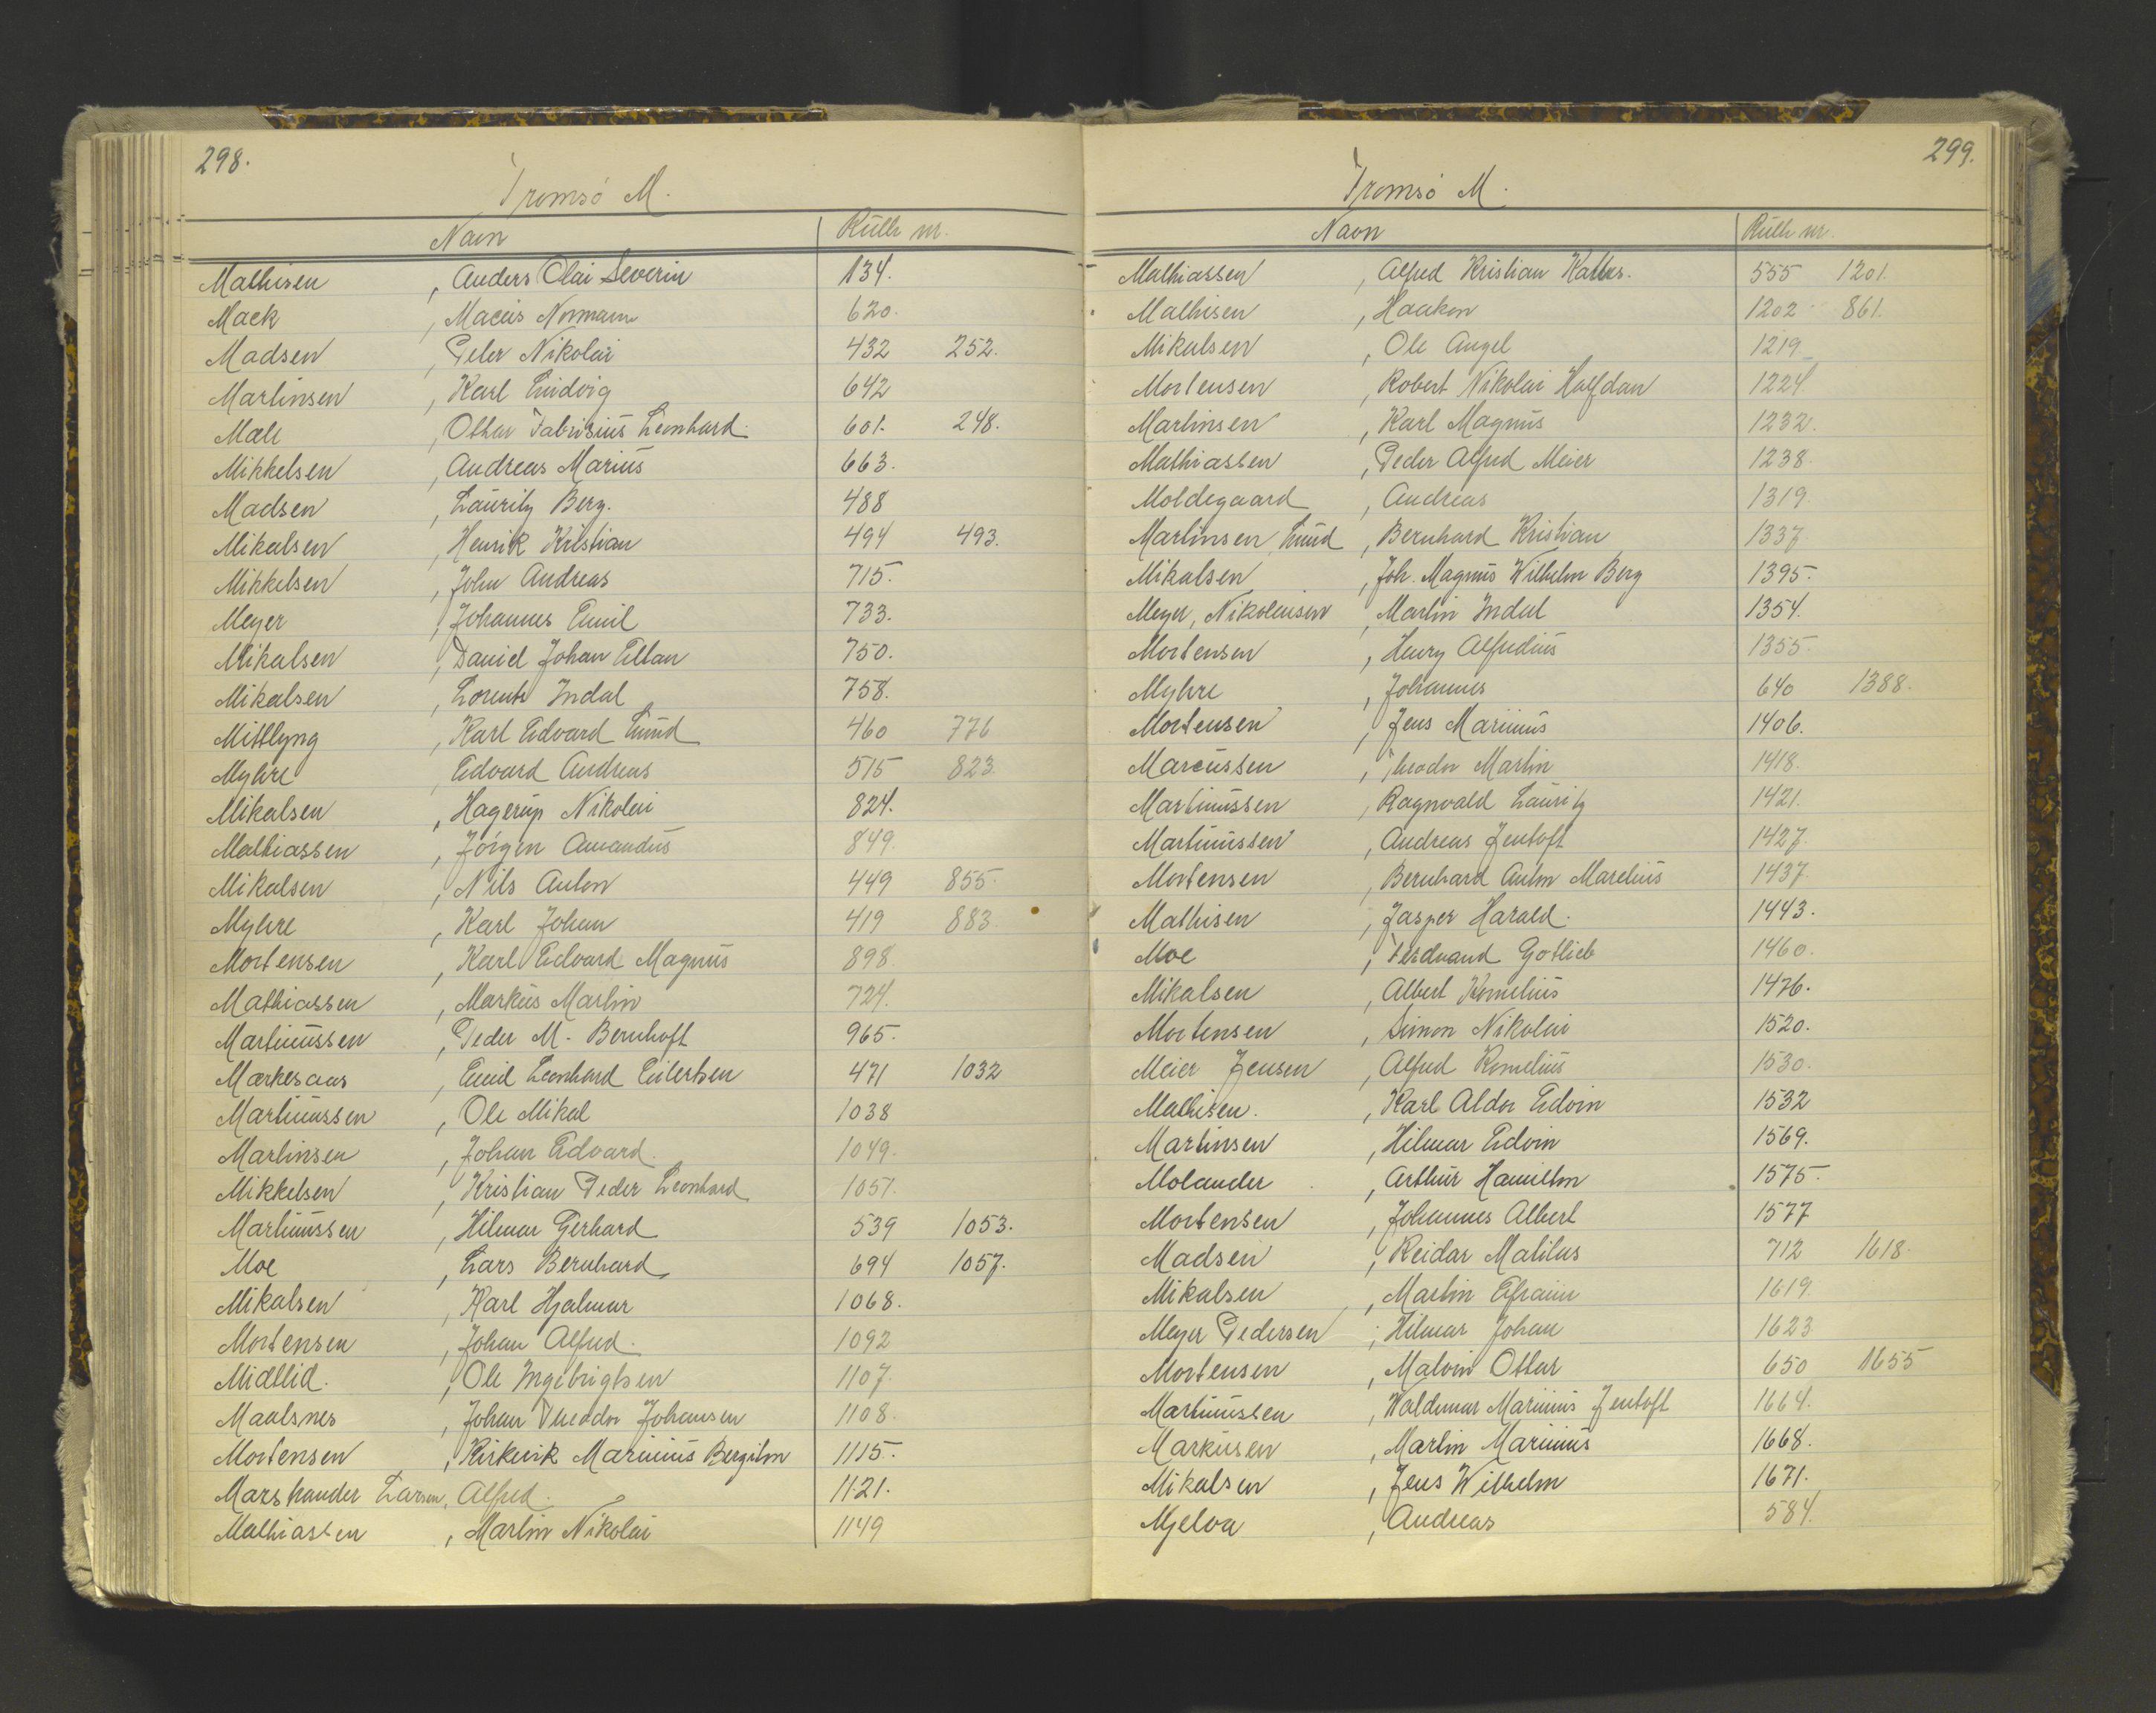 298.
Tromsö M.
Navn Rulle nr.
Mathisen, Anders Olai Severin 134.
Mack, Macus Normann 620.
Madsen, Peter Nikolai 432 252.
Martinsen, Karl Ludvig 642
Male, Othar Fabrisius Leonhard. 601. 248.
Mikkelsen, Andreas Marius 663.
Madsen, Lauritz Berg. 488
Mikalsen, Henrik Kristian 494 493.
Mikkelsen, John Andreas 715.
Meyer, Johannes Emil 733.
Mikalsen, Daniel Johan Ellan 750.
Mikalsen, Lorents Indal 758.
Mittlyng, Karl Edvard Lund 460 776
Myhre, Edvard Andreas 515 823.
Mikalsen, Hagerup Nikolai 824.
Mathiassen, Jörgen Amandus 849.
Mikalsen, Nils Anton 449 855.
Myhre, Karl Johan 419 883.
Mortensen, Karl Edvard Magnus 898
Mathiassen, Markus Martin 724.
Martinussen, Peder M. Bernhoft 965.
Markesaas, Emil Leonhard Eilertsen 471 1032
Martinussen, Ole Mikal 1038
Martinsen, Johan Edvard. 1049.
Mikkelsen, Kristian Peder Leonhard 1051.
Martinussen, Hilmar Gerhard 539 1053.
Moe, Lars Bernhard 694 1057.
Mikalsen, Karl Hjalmar 1068.
Mortensen, Johan Alfred. 1092
Midtlid., Ole Ingebrigtsen 1107.
Maalsnes, Johan Theodor Johansen 1108.
Mortensen, Marinius Bergiton 1115.
Larsen, Alfred. 1121.
Mathiassen, Martin Nikolai 1149
299.
Tromsö M.
Navn Rulle nr.
Mathiassen, Alfred Kristian 555 1201.
Mathisen, Haakon 1202 861.
Mikalsen, Ole Angel 1219
Mortensen, Robert Nikolai Halfdan 1224
Martinsen, Karl Magnus 1232.
Mathiassen, Peder Alfred Meier 1238.
Moldegaard, Andreas 1319.
Martinsen Lund, Bernhard Kristian 1337.
Mikalsen, Joh. Magnus Wilhelm Berg 1395.
Meyer, Nikolaisen, Martin Indal 1354.
Mortensen, Henry Alfredius 1355.
Myhre, Johannes 640 1388.
Mortensen, Jens Marinius 1406.
Marcussen, Theodor Martin 1418.
Martinussen, Ragnvald Lauritz 1421.
Martinussen, Andreas Jentoft 1427.
Mortensen, Bernhard Anton Marelius 1437.
Mathisen, Jasper Harald. 1443.
Moe, Ferdinand Gotlieb 1460.
Mikalsen, Albert Kornelius 1476.
Mortensen, Simon Nikolai 1520.
Meier Jensen, Alfred Kornelius 1530.
Mathisen., Karl Aldor Edvin 1532
Martinsen, Hilmar Edvin 1569.
Molander, Arthur Hamilton 1575.
Mortensen, Johannes Albert 1577
Madsen, Reidar Matilus 712 1618.
Mikalsen, Martin Efraim 1619.
Meyer Pedersen, Hilmar Johan 1623
Mortensen, Malvin Ottar 650 1655
Martinussen, Waldemar Marinius Jentoft 1664.
Markusen, Martin Marinius 1668.
Mikalsen, Jens Wilhelm 1671.
Mjelva, Andreas 584.